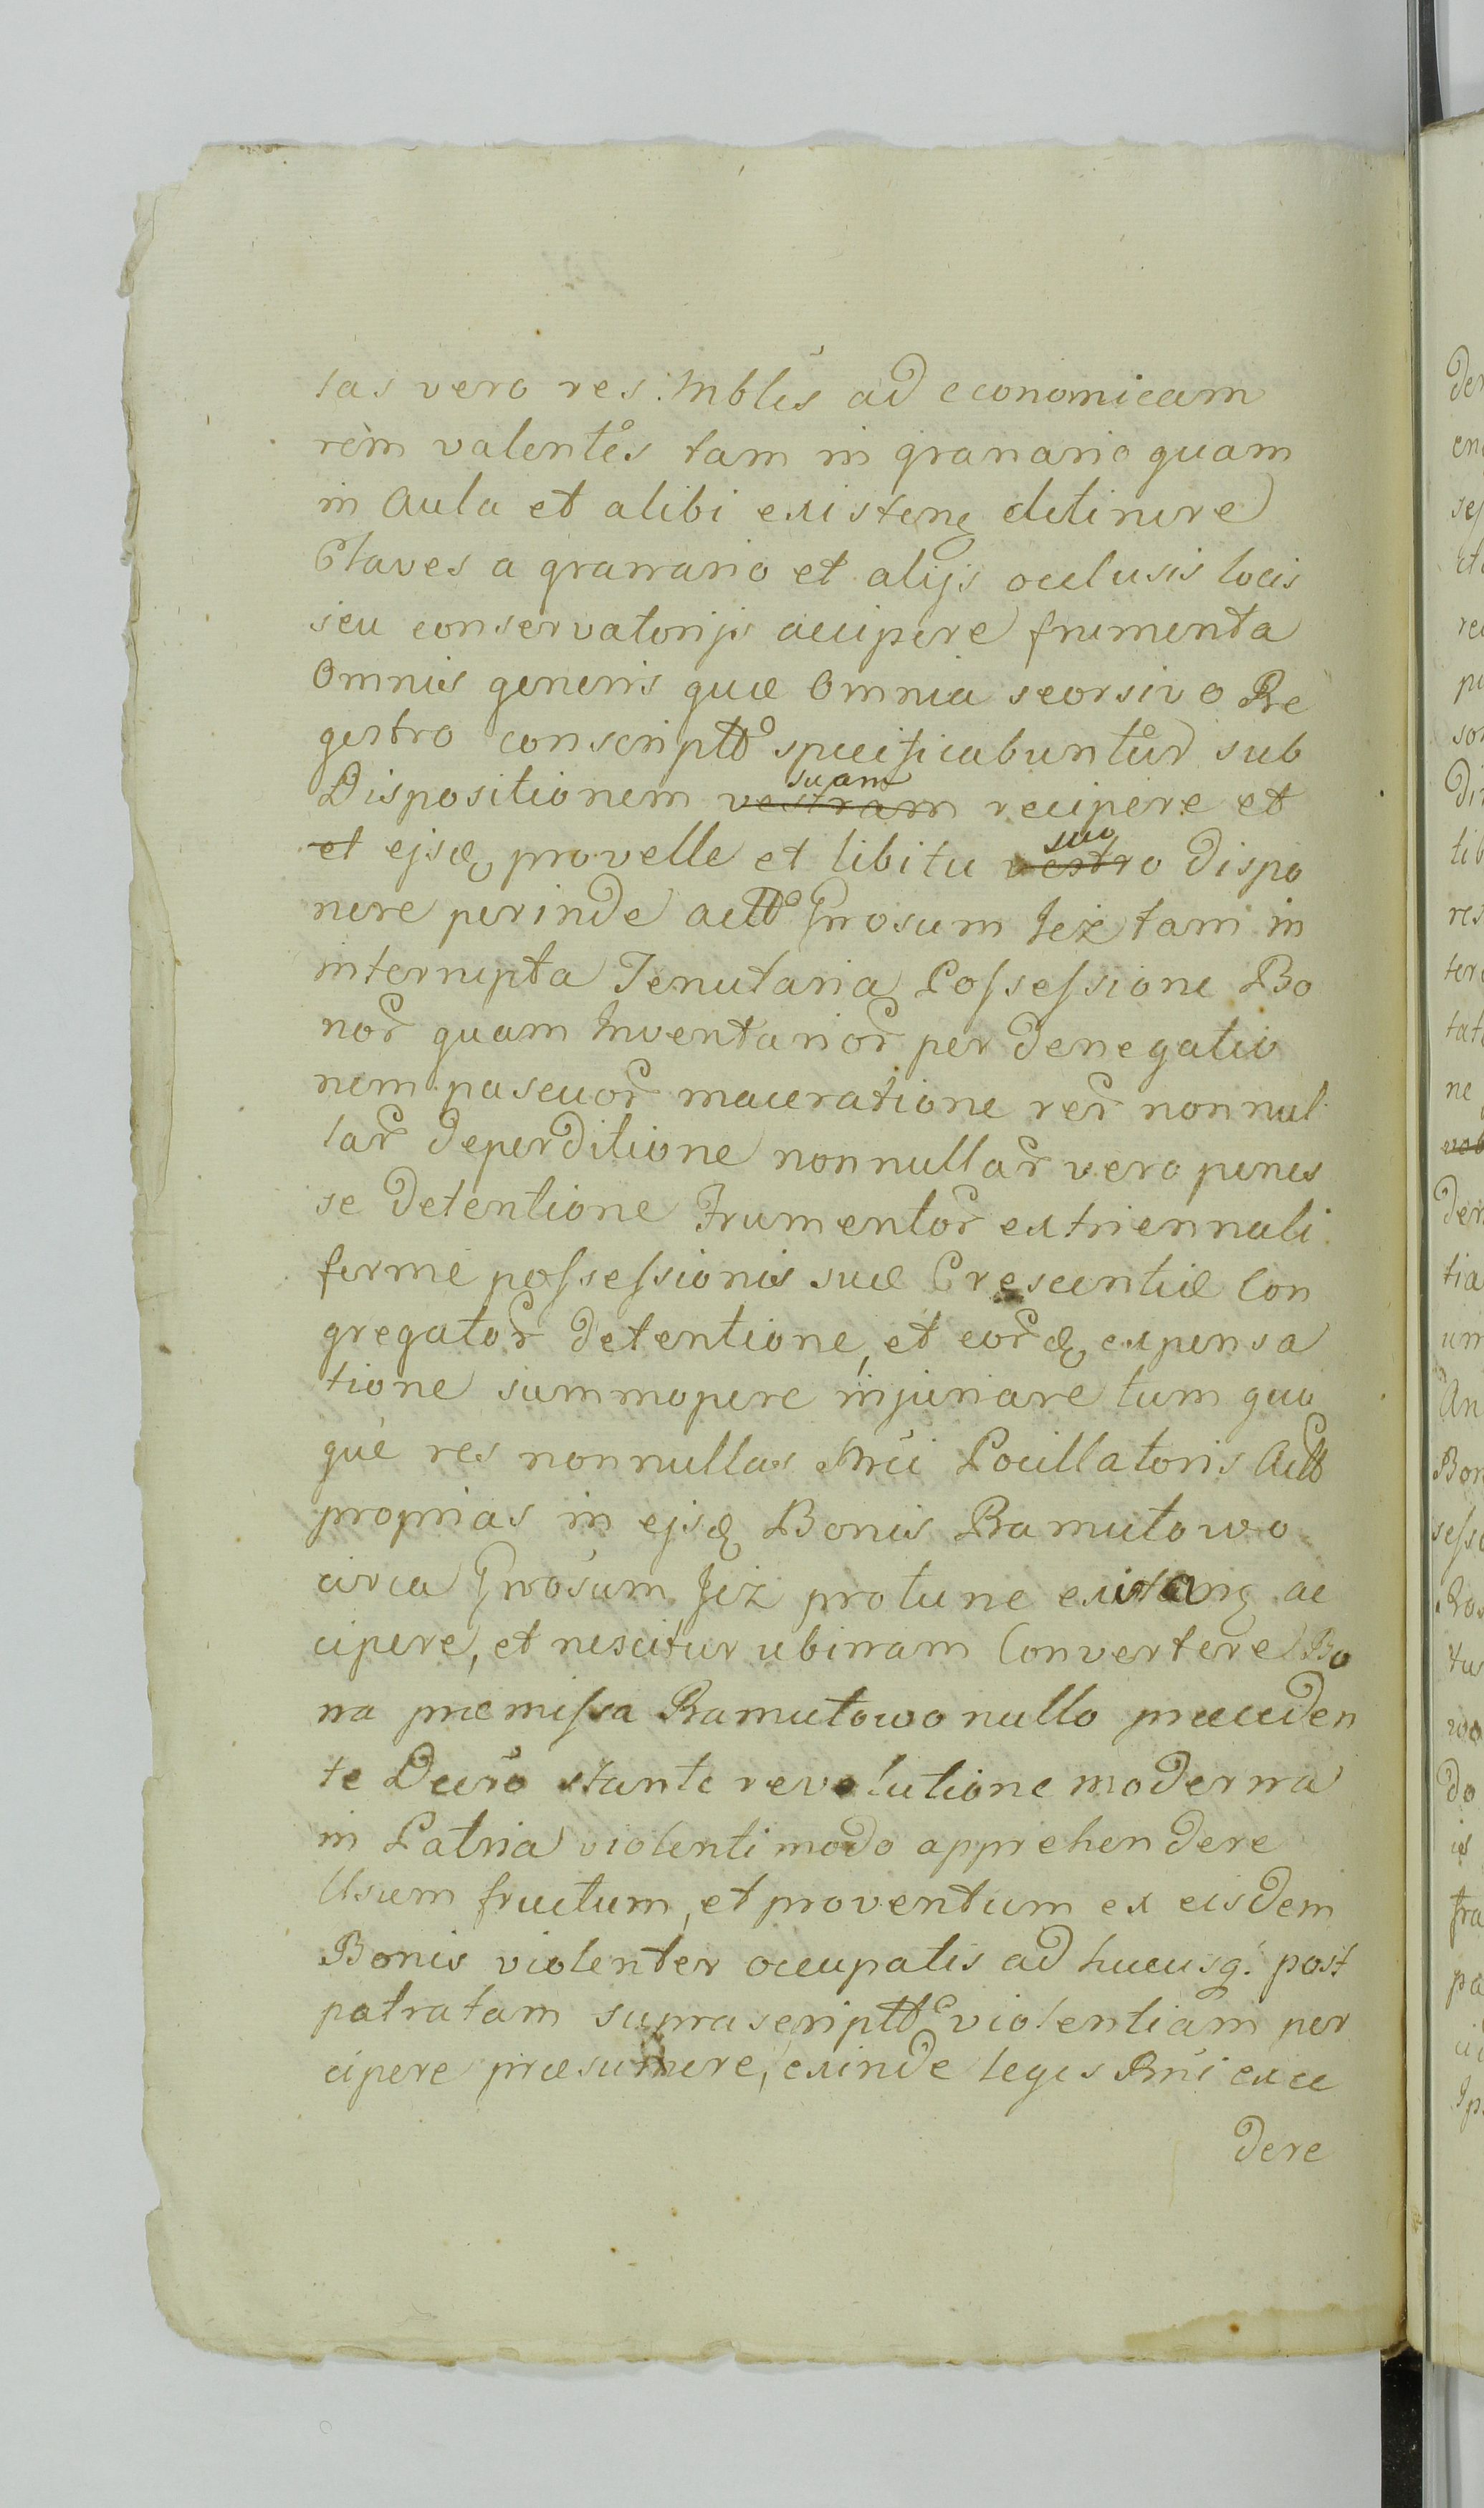 las vero res Mbles ad economicam
rem valentes tam in granario quam
in Aula et alibi existen detinere
Claves a granario et alijs oclusis locis
seu conservatorijs accipere frumenta
Omnis generis quæ Omnia seorsivo Re
gestro conscriptto specificabuntur sub
Dispositionem vestram suam recipere et
et ejsdq provelle et libitu vestro suo dispo
nere perinde acttto Gnosum Jeż tam in
interrupta Tenutaria Possessione Bo
nor quam Inventarior per denegatio
nem pascuor maceratione rer nonnul
lar deperditione nonnullar vero penes
se detentione Frumentor ex triennali
ferme possessionis suæ Crescentiæ Con
gregator detentione, et eordq expensa
tione summopere injuriare tum quo
que res nonnullas Pocillatoris Actt
proprias in ejsd Bonis Ramutowo
circa Gnosum Jeż protunc existen ac
cipere, et nescitur ubinam Convertere Bo
na præmissa Ramutowo nullo præceden
te Decro stante revolutione moderna
in Patria violenti modo apprehendere
Usum fructum, et proventum ex eisdem
Bonis violenter occupatis ad hucusq. post
patratam suprascriptt violentiam per
cipere præsumere, exinde leges Rni exce
dere